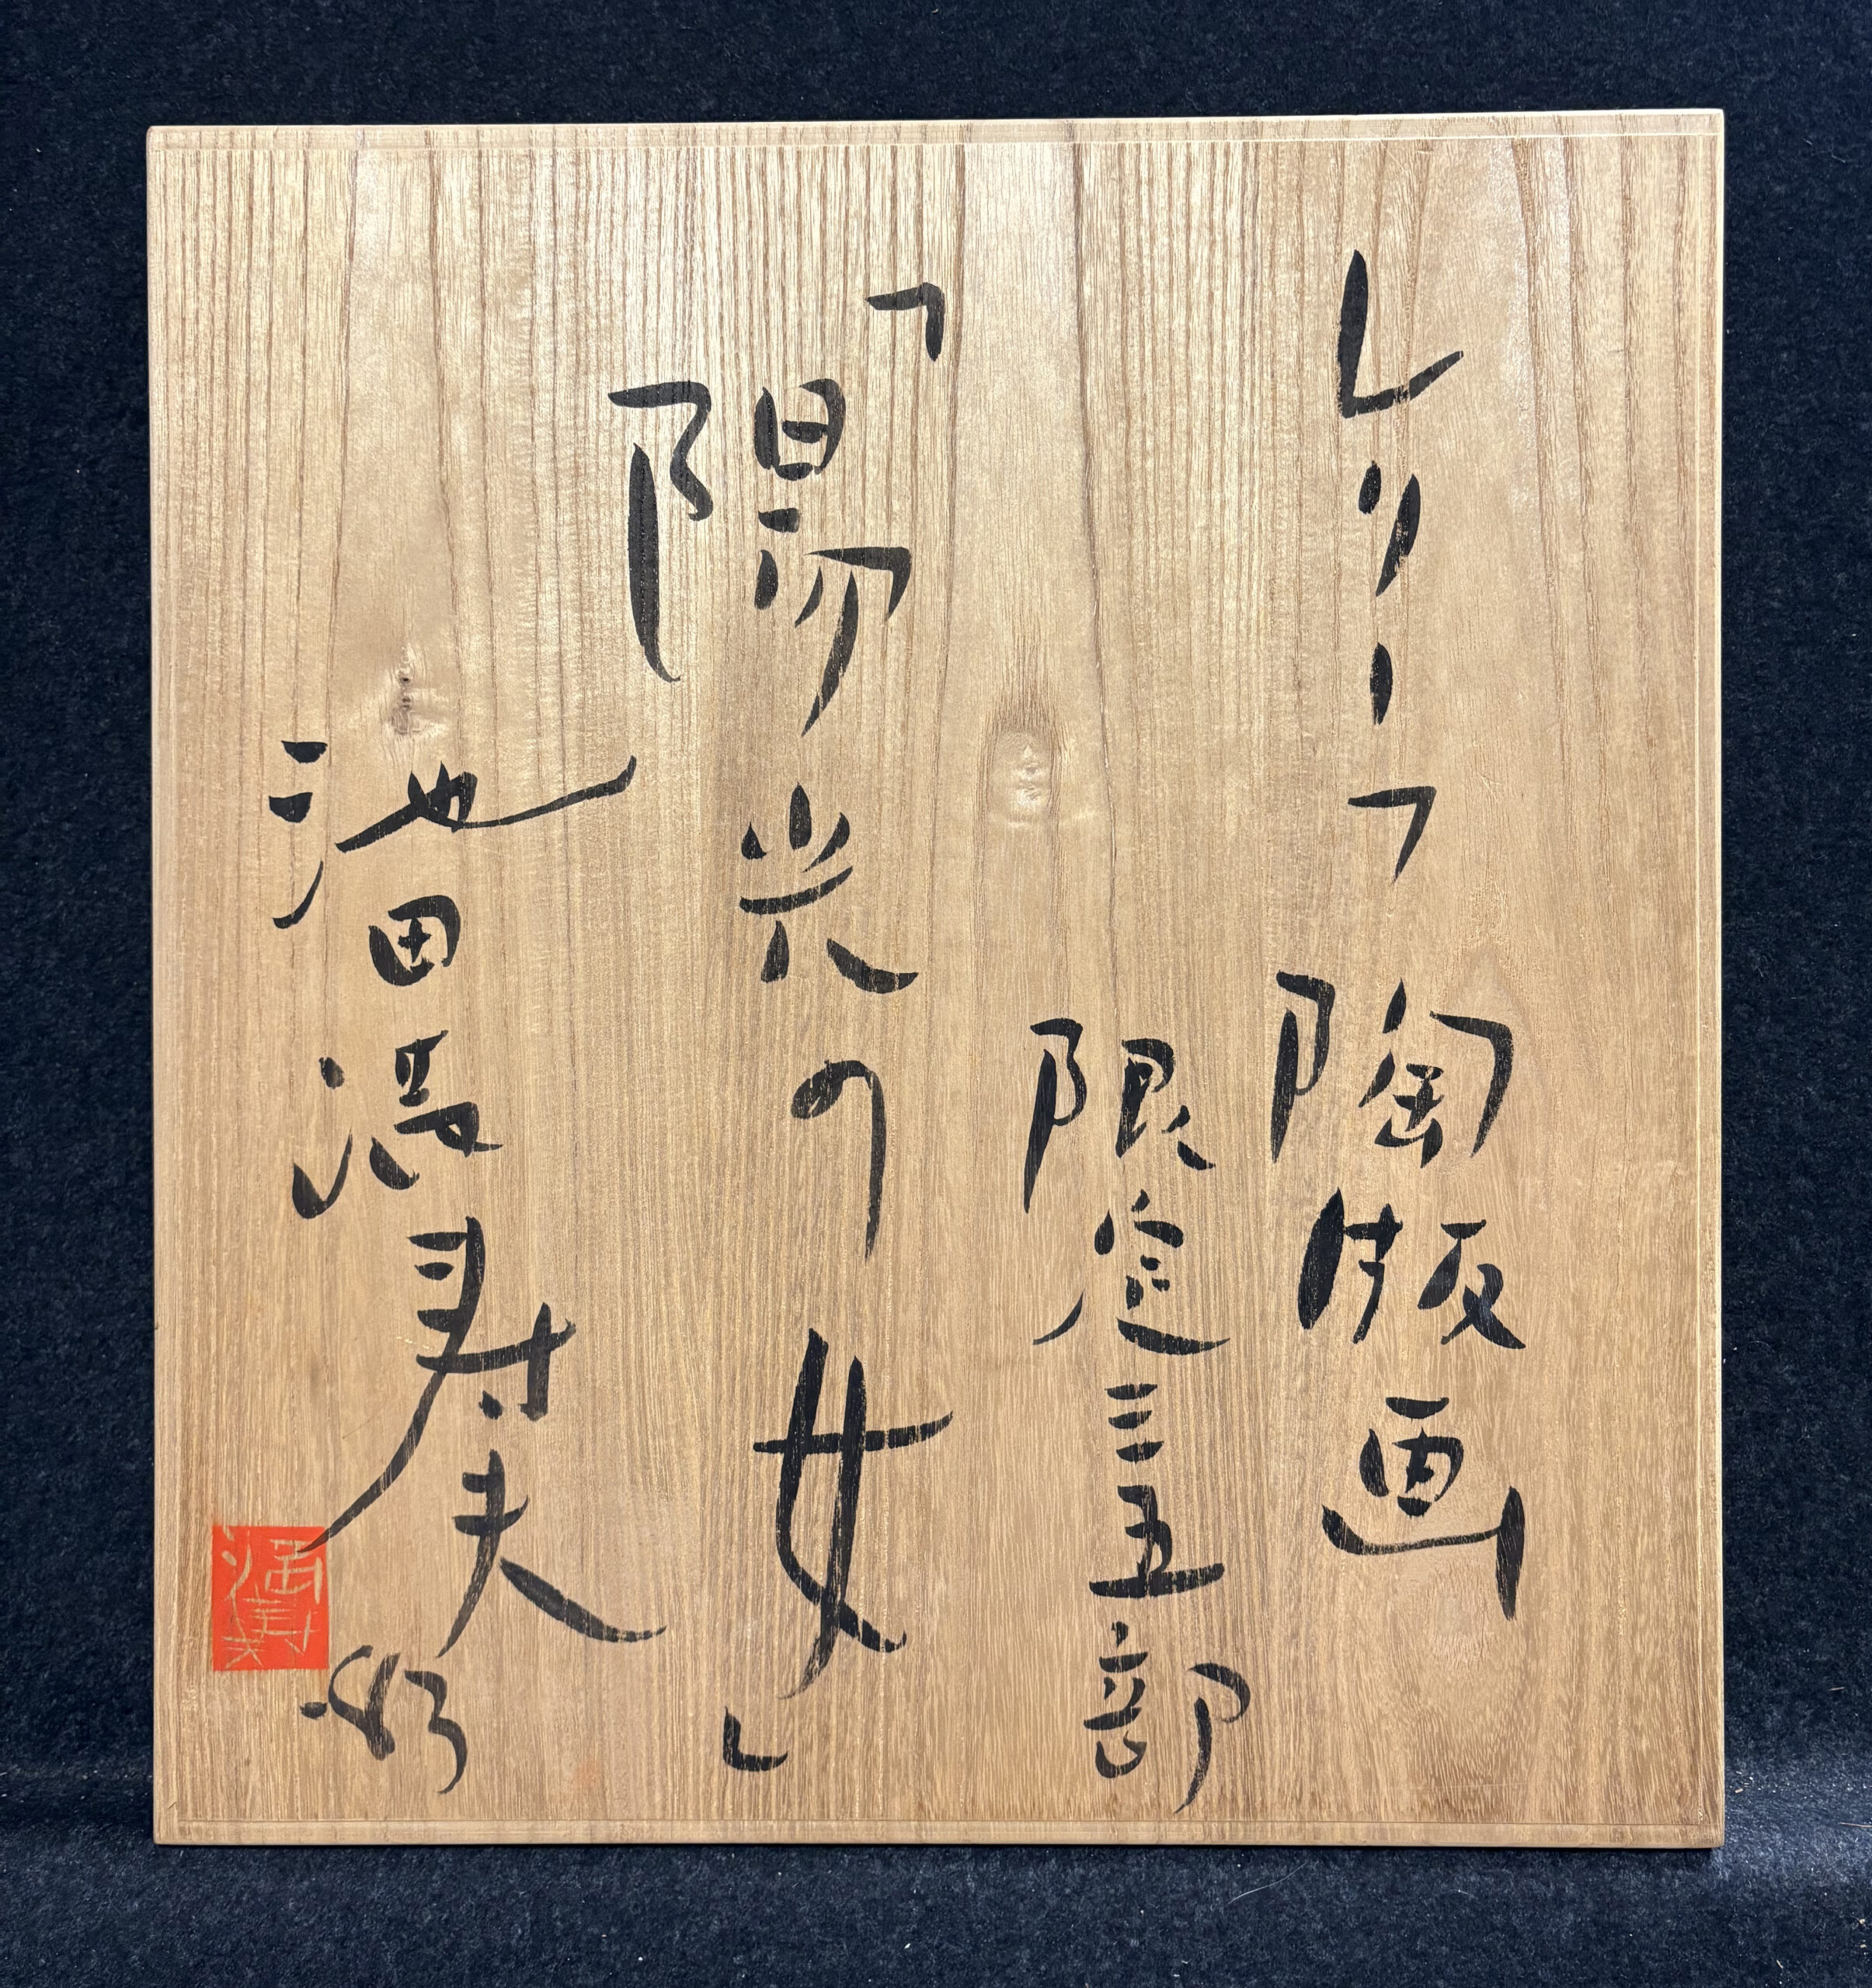 レリーフ陶版画
限定三五部
「陽光の女」
池田満寿夫